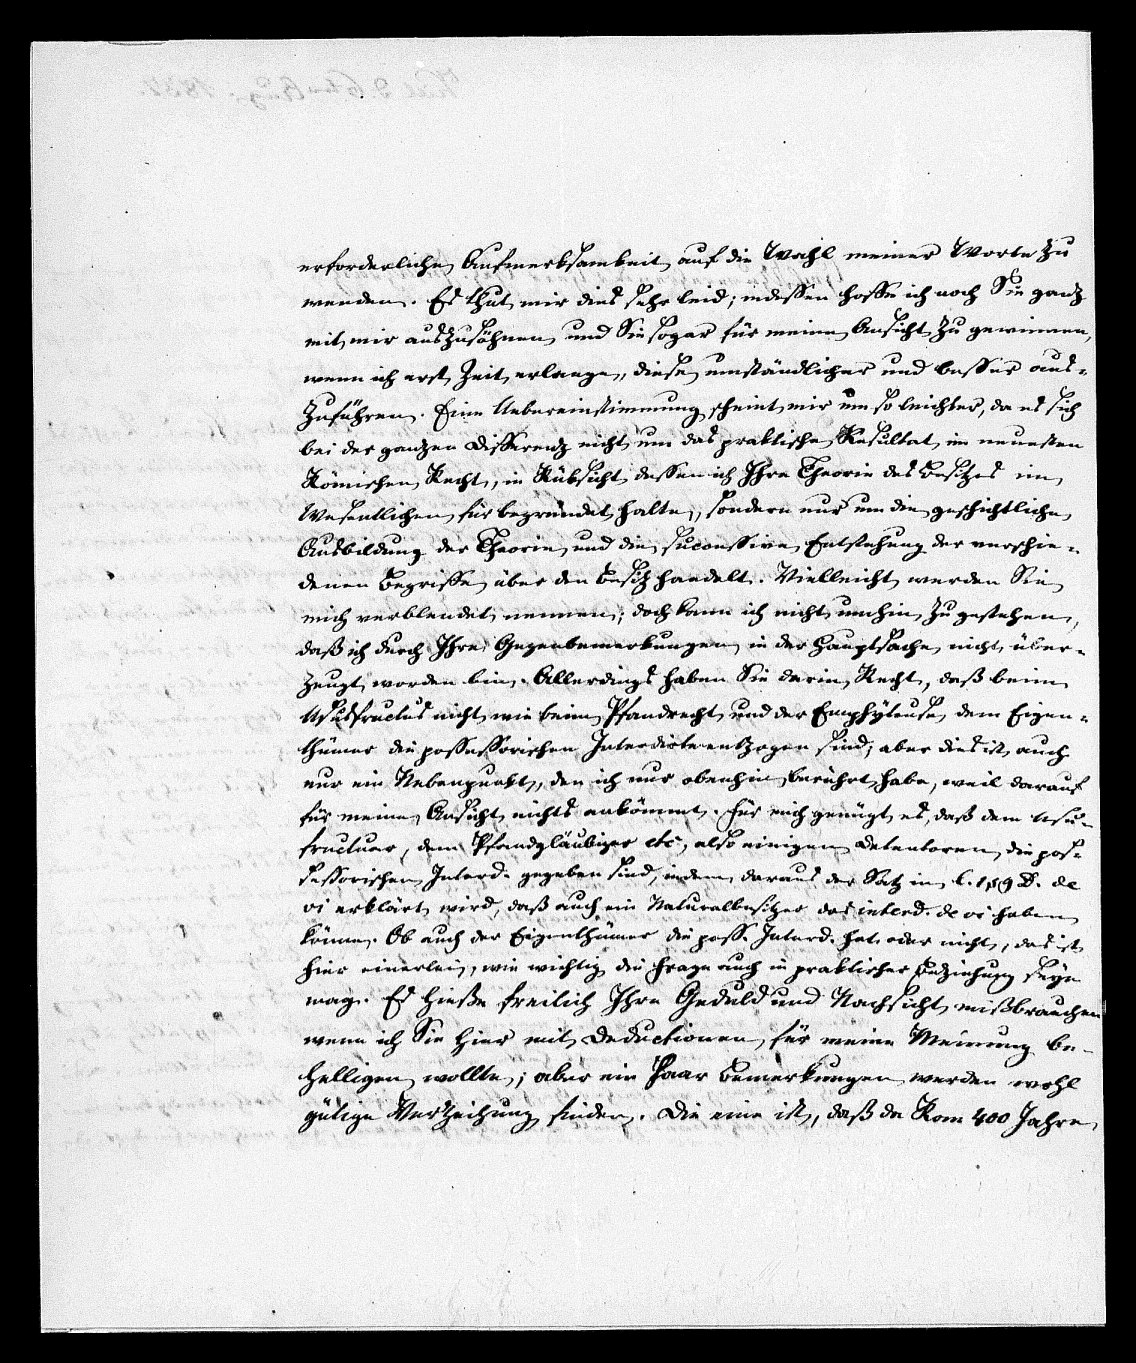 erforderliche Aufmerksamkeit auf die Wahl meiner Worte zu
wenden. Es thut mir dies sehr leid; indessen hoffe ich noch Sie ganz
mit mir auszusöhnen und Sie sogar für meine Ansicht zu gewinnen,
wenn ich erst Zeit erlange, diese umständlicher und besser aus-
zuführen. Eine Uebereinstimmung scheint mir um so leichter, da es sich
bei der ganzen Differenz nicht um das praktische Resultat im neuesten
Römischen Recht, in Rüksicht dessen ich Ihre Theorie des Besitzes im
Wesentlichen für begründet halte, sondern nur um die geschichtliche
Ausbildung der Theorie und die successive Entstehung der verschie-
denen Begriffe über den Besitz handelt. Vielleicht werden Sie
mich verblendet nennen; doch kann ich nicht umhin zu gestehen,
daß ich durch Ihre Gegenbemerkungen in der Hauptsache nicht über-
zeugt worden bin. Allerdings haben Sie darin Recht, daß beim
Ususfructus nicht wie beim Pfandrecht und der Emphyteuse dem Eigen-
thümer die possessorischen Interdicte entzogen sind; aber dies ist auch
nur ein Nebenpunkt, den ich nur obenhin berührt habe, weil darauf
für meine Ansicht nichts ankömmt. Für mich genügt es, daß dem Usu-
fructuar, dem Pfandgläubiger etc, also einigen Detentoren die pos-
sessorischen Interd. gegeben sind, indem daraus der Satz in l. 1 § 9 D. de
vi erklärt wird, daß auch ein Naturalbesitzer das interd. de vi haben
könne. Ob auch der Eigenthümer die poss. Interd. hat oder nicht, das ist
hier einerlei, wie wichtig die Frage auch in praktischer Beziehung seyn
mag. Es hieße freilich Ihre Geduld und Nachsicht mißbrauchen
wenn ich Sie hier mit Deductionen für meine Meinung be-
helligen wollte; aber ein Paar Bemerkungen werden wohl
gütige Verzeihung finden. Die eine ist, daß da Rom 400 Jahre